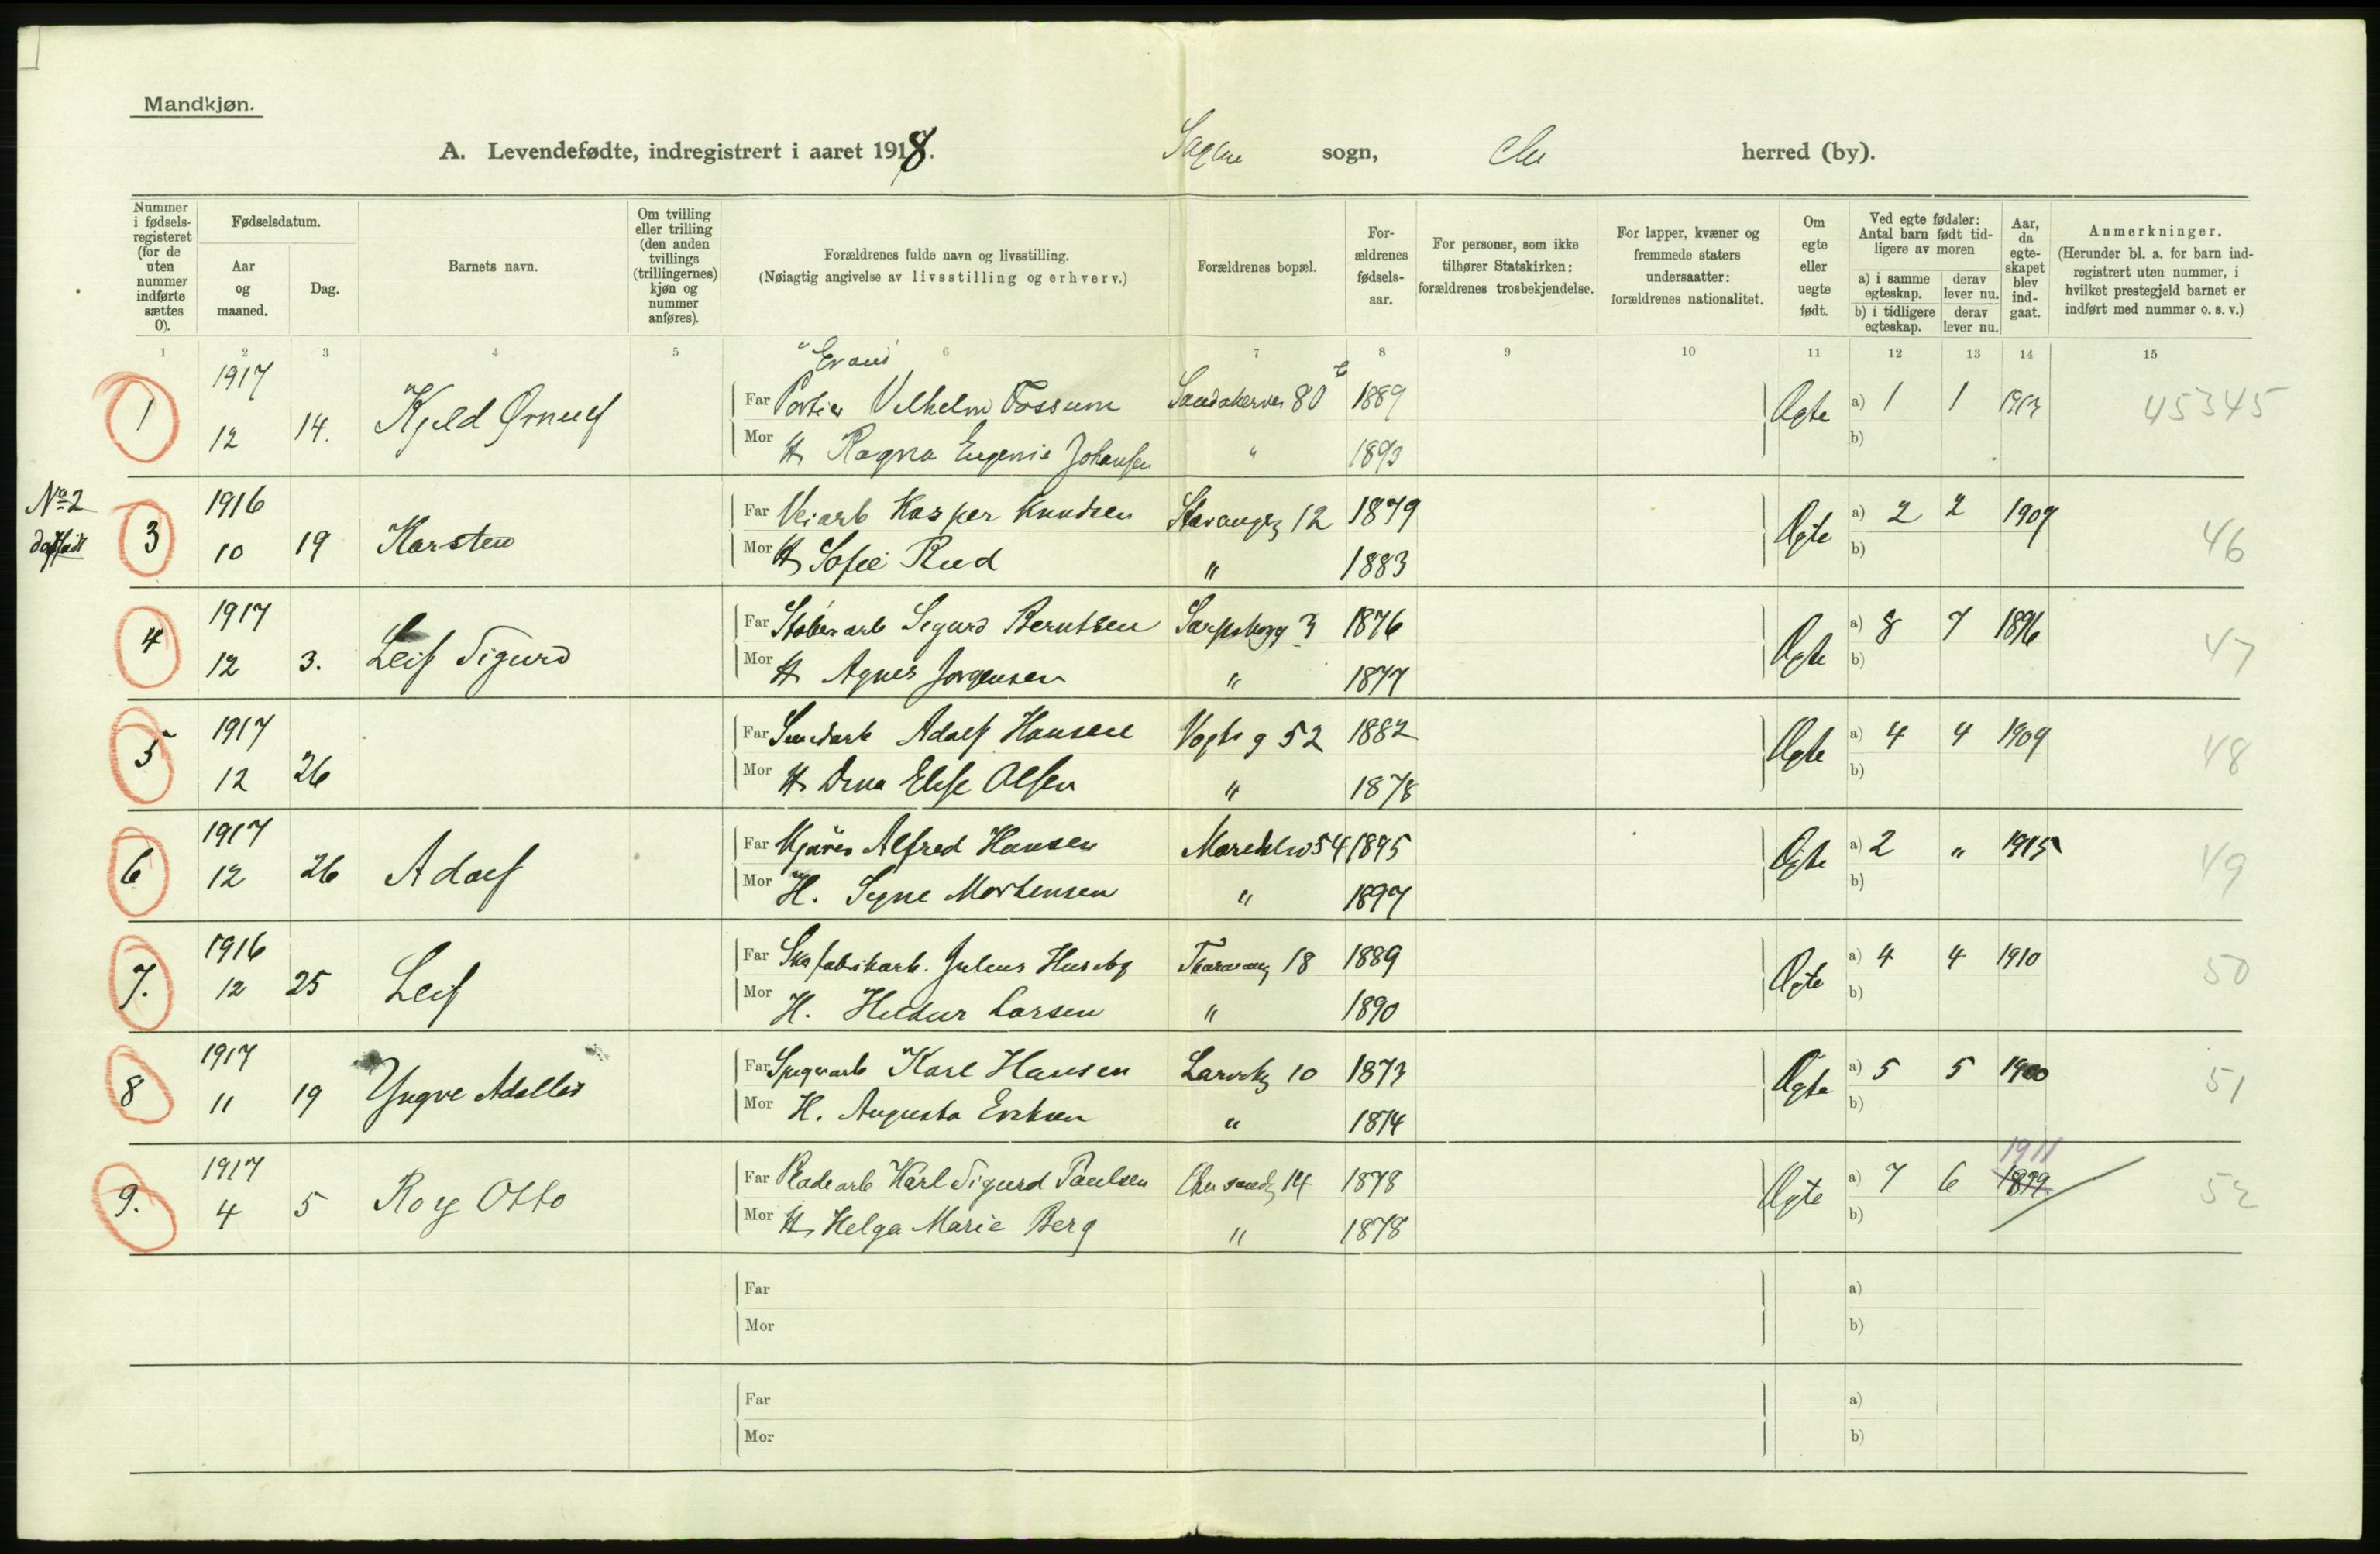 Mandkjøn.
A. Levendefødte, indregistrert i aaret 1918. Sagene sogn, Chr herred (by).
Nummer i fødsels-registeret (for de uten nummer indførte sættes 0).
Fødselsdatum.
Aar og maaned.
Dag.
Barnets navn.
Om tvilling eller trilling (den anden tvillings (trillingernes) kjøn og nummer anføres).
Forældrenes fulde navn og livsstilling.
(Nøiagtig angivelse av livsstilling og erhverv.)
Forældrenes bopæl.
For-ældrenes fødsels-aar.
For personer, som ikke tilhører Statskirken: forældrenes trosbekjendelse.
For lapper, kvæner og fremmede staters undersaatter: forældrenes nationalitet.
Om egte eller uegte født.
Ved egte fødsler: Antal barn født tid-ligere av moren
a) i samme egteskap. derav lever nu.
b) i tidligere egteskap. derav lever nu.
Aar, da egte-skapet blev ind-gaat.
Anmerkninger.
(Herunder bl. a. for barn ind-registrert uten nummer, i hvilket prestegjeld barnet er indført med nummer o. s. v.)
1 2 3 4 5 6 7 8 9 10 11 12 13 14 15
1917
1 12 14. Kjeld Far Portier Vilhelm Fossum 80 1889 Egte a) 1 1 45345
Mor H Ragna Eugenie Johansen " 1893 b)
No 2 dødfødt
1916
3 10 19 Karsten Far Veiarb Kasper Knudsen Stavangerg 12 1879 Egte a) 2 2 1909 46
Mor H Sofie Rud " 1883 b)
1917
4 12 3. Leif Sigurd Far Sigurd Berntsen Sarpsborgg 3 1876 Egte a) 8 7 1896 47
Mor H Agnes Jørgensen " 1877 b)
1917
5 12 26 Far Adolf Hansen Vogts g 52 1882 Egte a) 4 4 1909 48
Mor H Elise Olsen " 1878 b)
1917
6 12 26 Adolf Far Alfred Hansen 54 1895 Egte a) 2 " 1915 49
Mor H. Signe Mortensen " 1897 b)
1916
7. 12 25 Leif Far Skofabrikarb. Julius Huseby 18 1889 Egte a) 4 4 1910 50
Mor H. Larsen " 1890 b)
1917
8 11 19 Yngve Far Karl Hansen Larvikg 10 1873 Egte a) 5 5 1900 51
Mor H. Augusta Eriksen " 1874 b)
1917 1911
9. 4 5 Roy Otto Far Pladearb Karl Sigurd Paulsen 14 1878 Egte a) 7 6 1899 52
Mor H Helga Marie Berg " 1878 b)
Far a)
Mor b)
Far a)
Mor b)